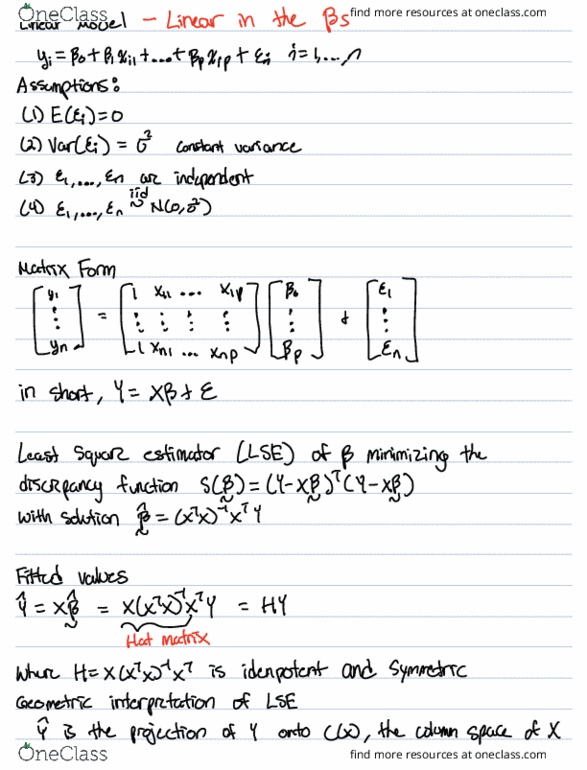 OneClass find more resources at oneclass.com
Linear Model - Linear in the βs
yᵢ = β₀ + β₁xᵢ₁ + ... + βₚxᵢₚ + εᵢ i = 1, ..., n
Assumptions:
(1) E(εᵢ) = 0
(2) Var(εᵢ) = σ² constant variance
(3) ε₁, ..., εn are independent
(4) ε₁, ..., εn iid ~ N(0, σ²)
Matrix Form
[y₁ ⋮ yn] = [1 x₁₁ ... x₁ₚ ⋮ ⋮ ⋮ ⋮ 1 xn₁ ... xnp] [β₀ ⋮ βₚ] + [ε₁ ⋮ εn]
in short, Y = Xβ + ε
Least square estimator (LSE) of β minimizing the
discrepancy function S(β) = (Y-Xβ)ᵀ(Y-Xβ)
with solution β̂ = (XᵀX)⁻¹XᵀY
Fitted values
Ŷ = Xβ̂ = X(XᵀX)⁻¹XᵀY = HY
Hat matrix
where H = X(XᵀX)⁻¹Xᵀ is idenpotent and symmetric
Geometric interpretation of LSE
Ŷ is the projection of Y onto C(X), the column space of X
OneClass find more resources at oneclass.com